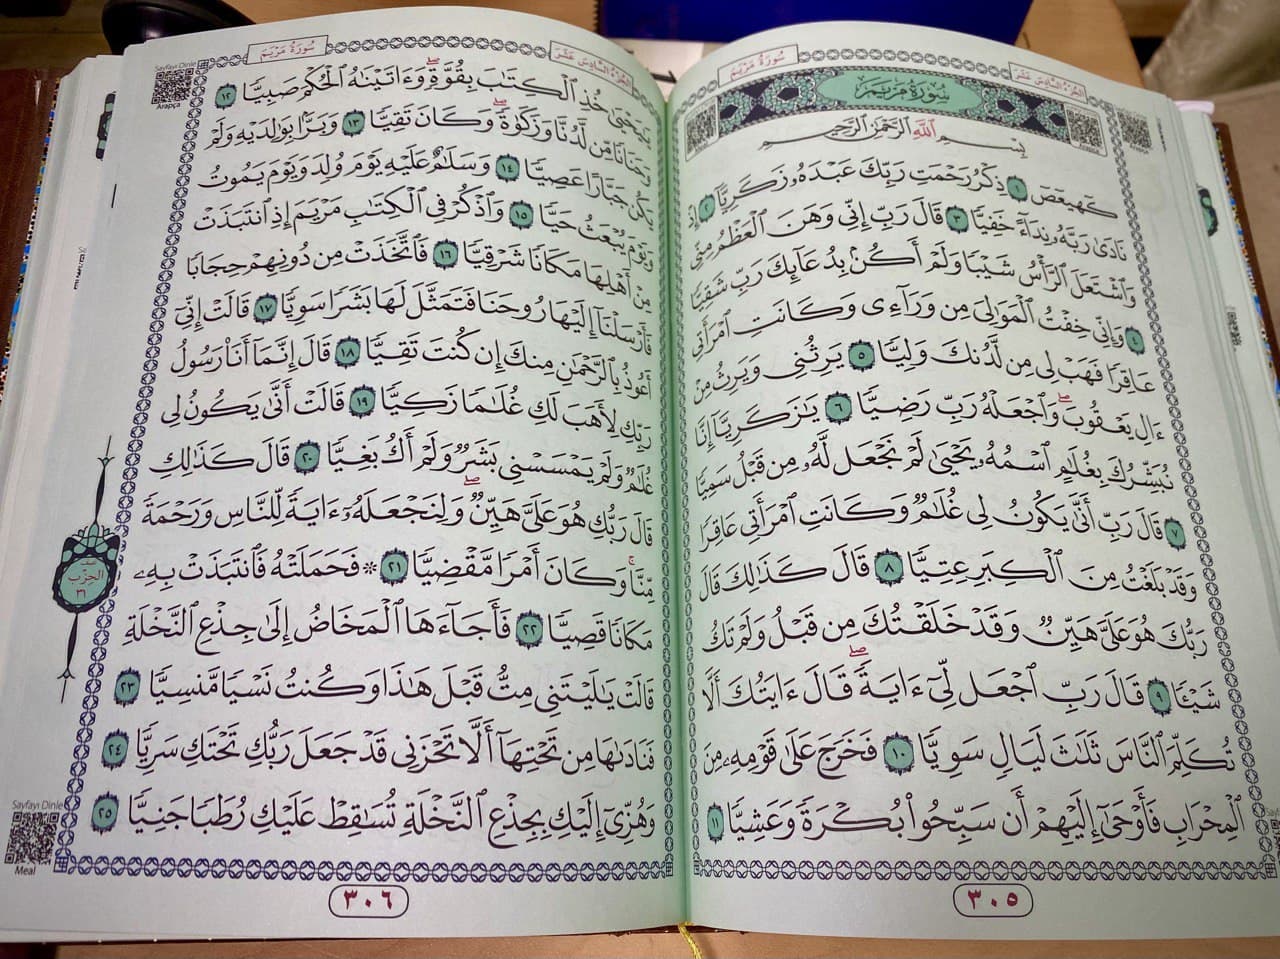 سُورَةُ مَرْيَمَ
الجُزْءُ السَّادِسَ عَشَرَ
سُورَةُ مَرْيَمَ
بِسْمِ اللَّهِ الرَّحْمَٰنِ الرَّحِيمِ
كٓهيعٓصٓ ١ ذِكْرُ رَحْمَتِ رَبِّكَ عَبْدَهُۥ زَكَرِيَّآ ٢ إِذْ
نَادَىٰ رَبَّهُۥ نِدَآءً خَفِيًّا ٣ قَالَ رَبِّ إِنِّي وَهَنَ ٱلْعَظْمُ مِنِّي
وَٱشْتَعَلَ ٱلرَّأْسُ شَيْبًا وَلَمْ أَكُنۢ بِدُعَآئِكَ رَبِّ شَقِيًّا
٤ وَإِنِّي خِفْتُ ٱلْمَوَٰلِيَ مِن وَرَآءِي وَكَانَتِ ٱمْرَأَتِي
عَاقِرًا فَهَبْ لِي مِن لَّدُنكَ وَلِيًّا ٥ يَرِثُنِي وَيَرِثُ مِنْ
ءَالِ يَعْقُوبَۖ وَٱجْعَلْهُ رَبِّ رَضِيًّا ٦ يَٰزَكَرِيَّآ إِنَّا
نُبَشِّرُكَ بِغُلَٰمٍ ٱسْمُهُۥ يَحْيَىٰ لَمْ نَجْعَل لَّهُۥ مِن قَبْلُ سَمِيًّا
٧ قَالَ رَبِّ أَنَّىٰ يَكُونُ لِي غُلَٰمٌ وَكَانَتِ ٱمْرَأَتِي عَاقِرًا
وَقَدْ بَلَغْتُ مِنَ ٱلْكِبَرِ عِتِيًّا ٨ قَالَ كَذَٰلِكَ قَالَ
رَبُّكَ هُوَ عَلَيَّ هَيِّنٌ وَقَدْ خَلَقْتُكَ مِن قَبْلُ وَلَمْ تَكُ
شَيْـًٔا ٩ قَالَ رَبِّ ٱجْعَل لِّيٓ ءَايَةًۖ قَالَ ءَايَتُكَ أَلَّا
تُكَلِّمَ ٱلنَّاسَ ثَلَٰثَ لَيَالٍ سَوِيًّا ١٠ فَخَرَجَ عَلَىٰ قَوْمِهِۦ مِنَ
ٱلْمِحْرَابِ فَأَوْحَىٰٓ إِلَيْهِمْ أَن سَبِّحُوا۟ بُكْرَةً وَعَشِيًّا ١١
٣٠٥
سُورَةُ مَرْيَمَ
الجُزْءُ السَّادِسَ عَشَرَ
Sayfayı Dinle
Arapça
يَٰيَحْيَىٰ خُذِ ٱلْكِتَٰبَ بِقُوَّةٍۖ وَءَاتَيْنَٰهُ ٱلْحُكْمَ صَبِيًّا ١٢
وَحَنَانًا مِّن لَّدُنَّا وَزَكَوٰةًۖ وَكَانَ تَقِيًّا ١٣ وَبَرًّۢا بِوَٰلِدَيْهِ وَلَمْ
يَكُن جَبَّارًا عَصِيًّا ١٤ وَسَلَٰمٌ عَلَيْهِ يَوْمَ وُلِدَ وَيَوْمَ يَمُوتُ
وَيَوْمَ يُبْعَثُ حَيًّا ١٥ وَٱذْكُرْ فِي ٱلْكِتَٰبِ مَرْيَمَ إِذِ ٱنتَبَذَتْ
مِنْ أَهْلِهَا مَكَانًا شَرْقِيًّا ١٦ فَٱتَّخَذَتْ مِن دُونِهِمْ حِجَابًا
فَأَرْسَلْنَآ إِلَيْهَا رُوحَنَا فَتَمَثَّلَ لَهَا بَشَرًا سَوِيًّا ١٧ قَالَتْ إِنِّيٓ
أَعُوذُ بِٱلرَّحْمَٰنِ مِنكَ إِن كُنتَ تَقِيًّا ١٨ قَالَ إِنَّمَآ أَنَا۠ رَسُولُ
رَبِّكِ لِأَهَبَ لَكِ غُلَٰمًا زَكِيًّا ١٩ قَالَتْ أَنَّىٰ يَكُونُ لِي
غُلَٰمٌ وَلَمْ يَمْسَسْنِي بَشَرٌ وَلَمْ أَكُ بَغِيًّا ٢٠ قَالَ كَذَٰلِكِ
قَالَ رَبُّكِ هُوَ عَلَيَّ هَيِّنٌۖ وَلِنَجْعَلَهُۥٓ ءَايَةً لِّلنَّاسِ وَرَحْمَةً
مِّنَّاۚ وَكَانَ أَمْرًا مَّقْضِيًّا ٢١ ۞ فَحَمَلَتْهُ فَٱنتَبَذَتْ بِهِۦ
مَكَانًا قَصِيًّا ٢٢ فَأَجَآءَهَا ٱلْمَخَاضُ إِلَىٰ جِذْعِ ٱلنَّخْلَةِ
قَالَتْ يَٰلَيْتَنِي مِتُّ قَبْلَ هَٰذَا وَكُنتُ نَسْيًا مَّنسِيًّا ٢٣
فَنَادَىٰهَا مِن تَحْتِهَآ أَلَّا تَحْزَنِي قَدْ جَعَلَ رَبُّكِ تَحْتَكِ سَرِيًّا ٢٤
وَهُزِّيٓ إِلَيْكِ بِجِذْعِ ٱلنَّخْلَةِ تُسَٰقِطْ عَلَيْكِ رُطَبًا جَنِيًّا ٢٥
الحِزْب
٣١
Sayfayı Dinle
Meal
٣٠٦